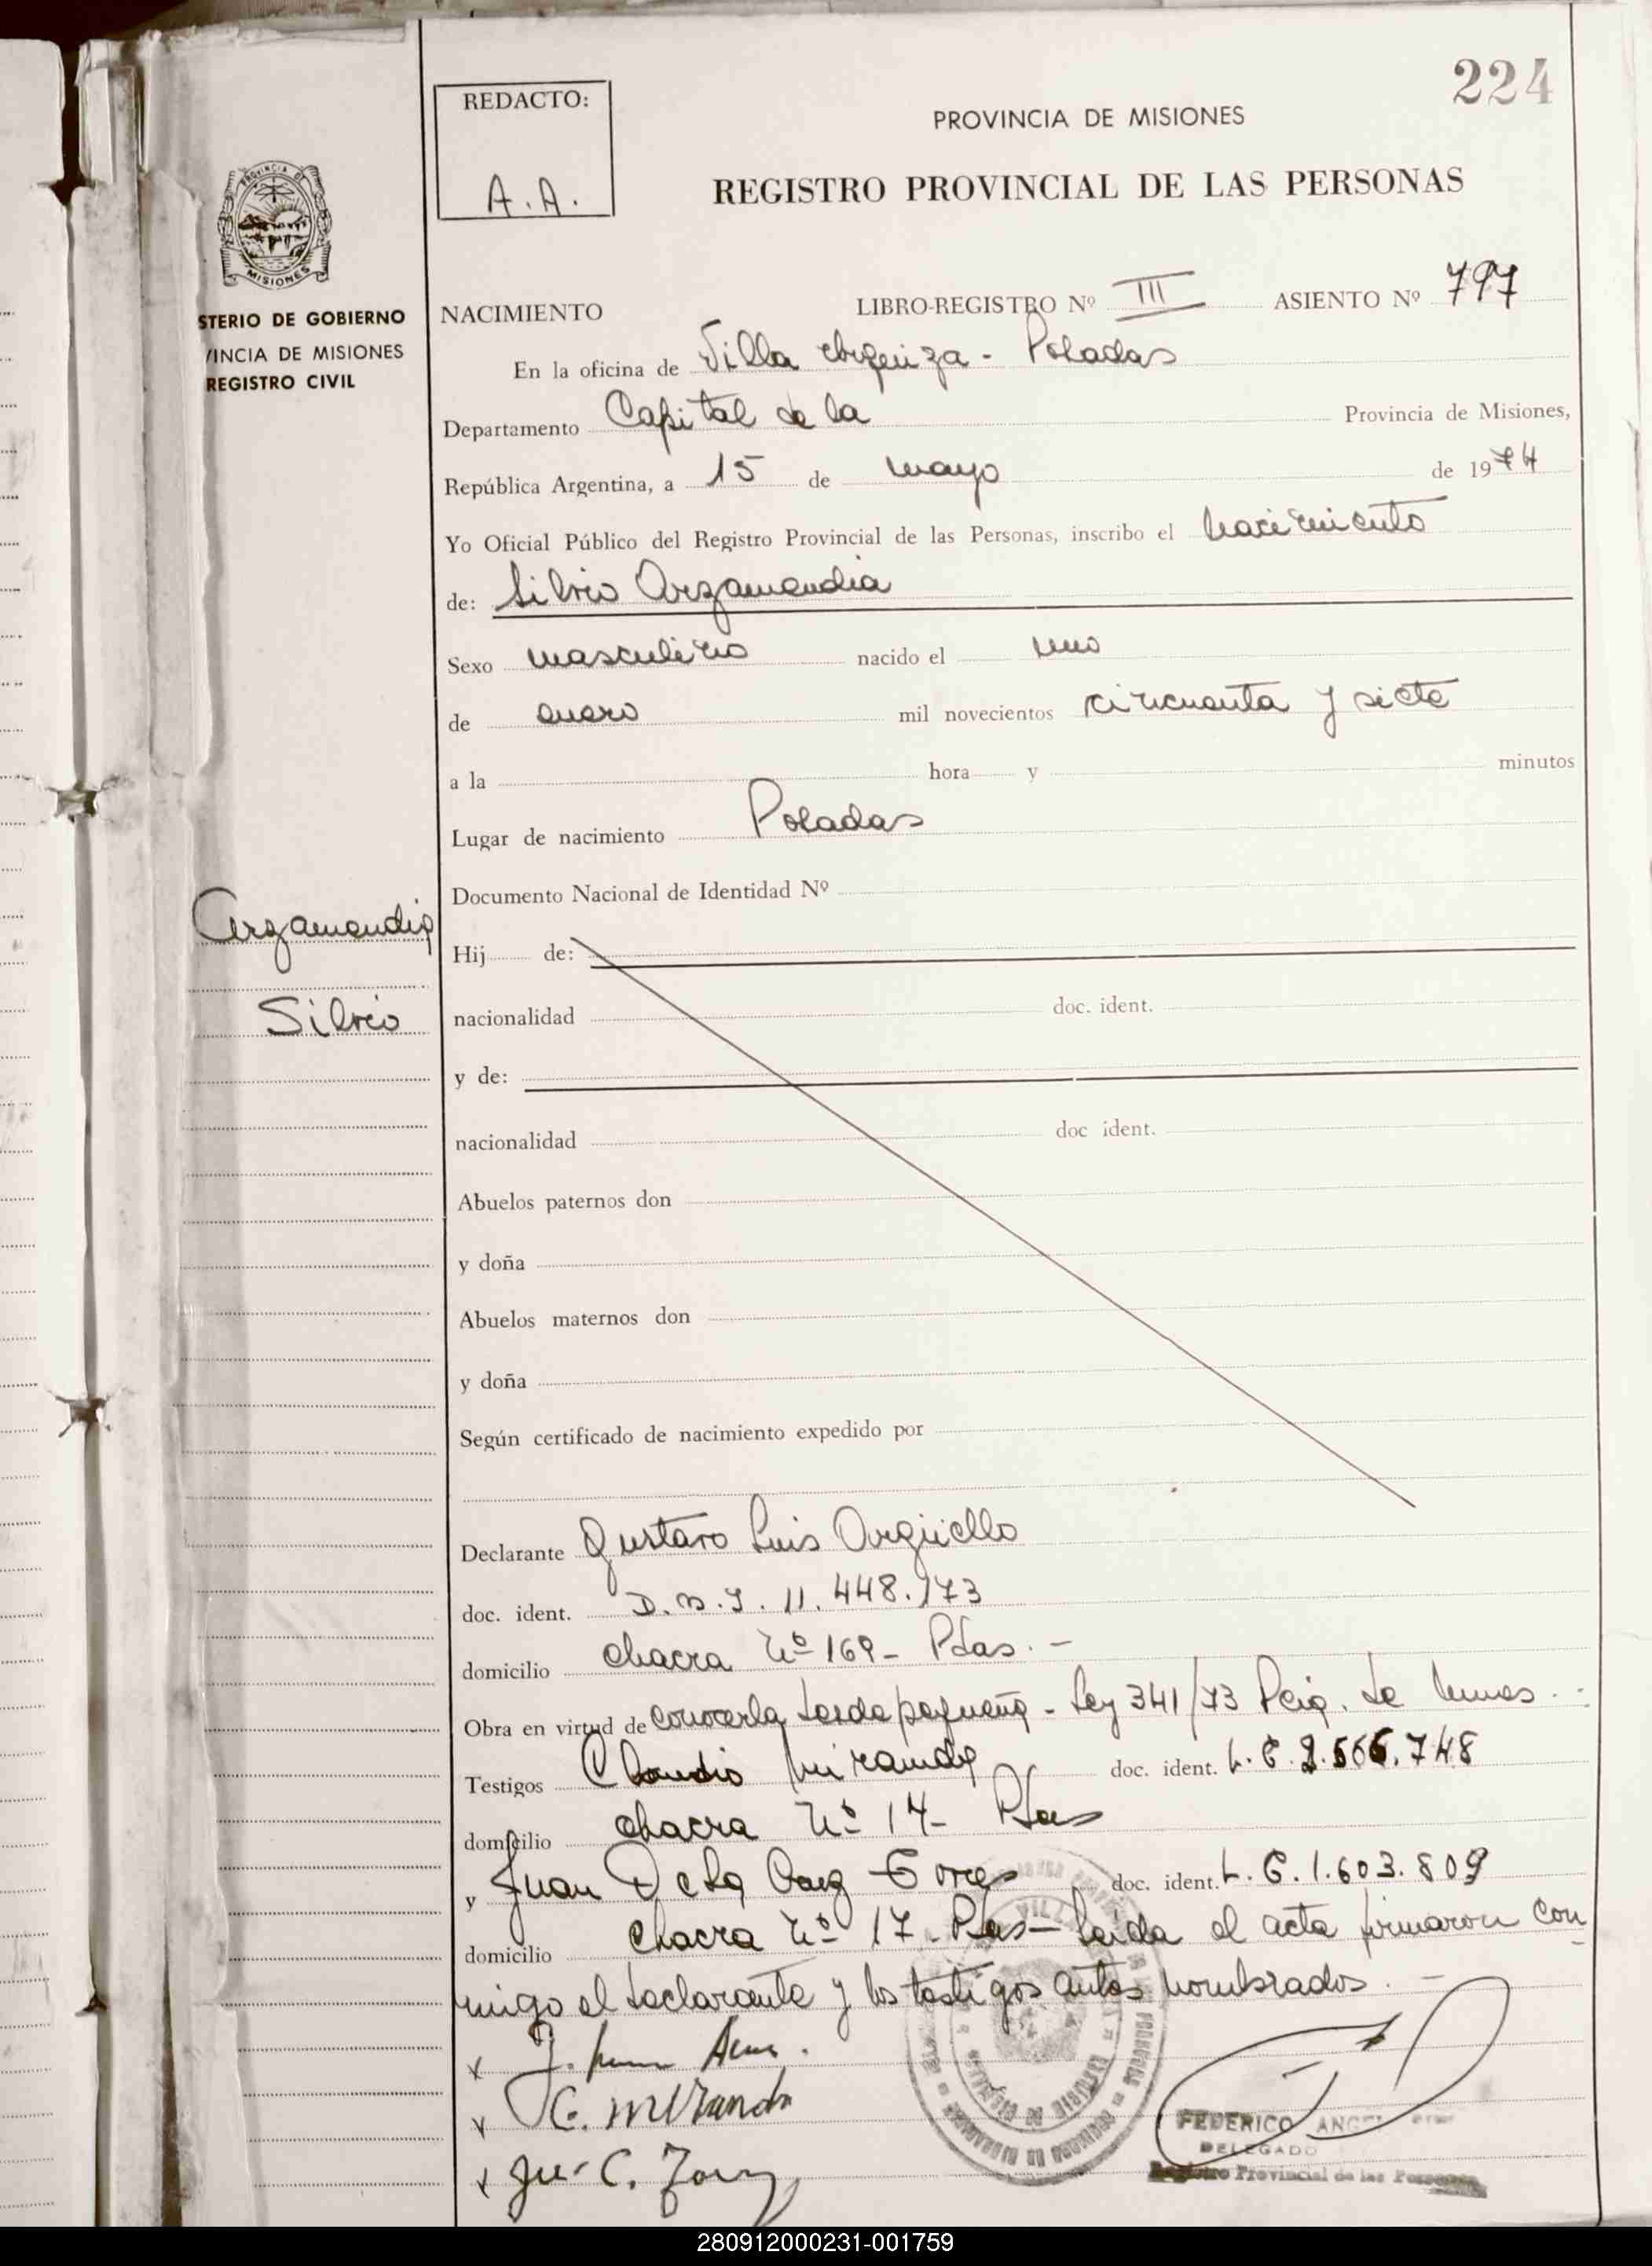 224
REDACTO:
A.A.
PROVINCIA DE MISIONES
REGISTRO PROVINCIAL DE LAS PERSONAS
PROVINCIA DE
MISIONES
STERIO DE GOBIERNO
VINCIA DE MISIONES
REGISTRO CIVIL
NACIMIENTO LIBRO-REGISTRO Nº III ASIENTO Nº 797
En la oficina de Villa Urquiza - Posadas
Departamento Capital de la Provincia de Misiones,
República Argentina, a 15 de mayo de 1974
Yo Oficial Público del Registro Provincial de las Personas, inscribo el nacimiento
de: Silvio Arzamendia
Sexo masculino nacido el uno
de enero mil novecientos cincuenta y siete
a la hora y minutos
Lugar de nacimiento Posadas
Documento Nacional de Identidad Nº
Arzamendia
Silvio
Hij de:
nacionalidad doc. ident.
y de:
nacionalidad doc ident.
Abuelos paternos don
y doña
Abuelos maternos don
y doña
Según certificado de nacimiento expedido por
Declarante Gustavo Luis Argüello
doc. ident. D.N.I. 11.448.173
domicilio chacra Nº 169 - Pdas. -
Obra en virtud de conocerla desde pequeño - Ley 341/73 de
Testigos Claudio Miranda doc. ident. L.E. 566.748
domicilio chacra Nº 14 - Pdas
y Juan De La Torres doc. ident. L.E. 1.603.809
domicilio chacra Nº 17 - Pdas - Leída el acta firmaron con
migo el declarante y los testigos antes nombrados. -
x
x C. Miranda
x
FEDERICO ANGEL
DELEGADO
Registro Provincial de las Personas
280912000231-001759